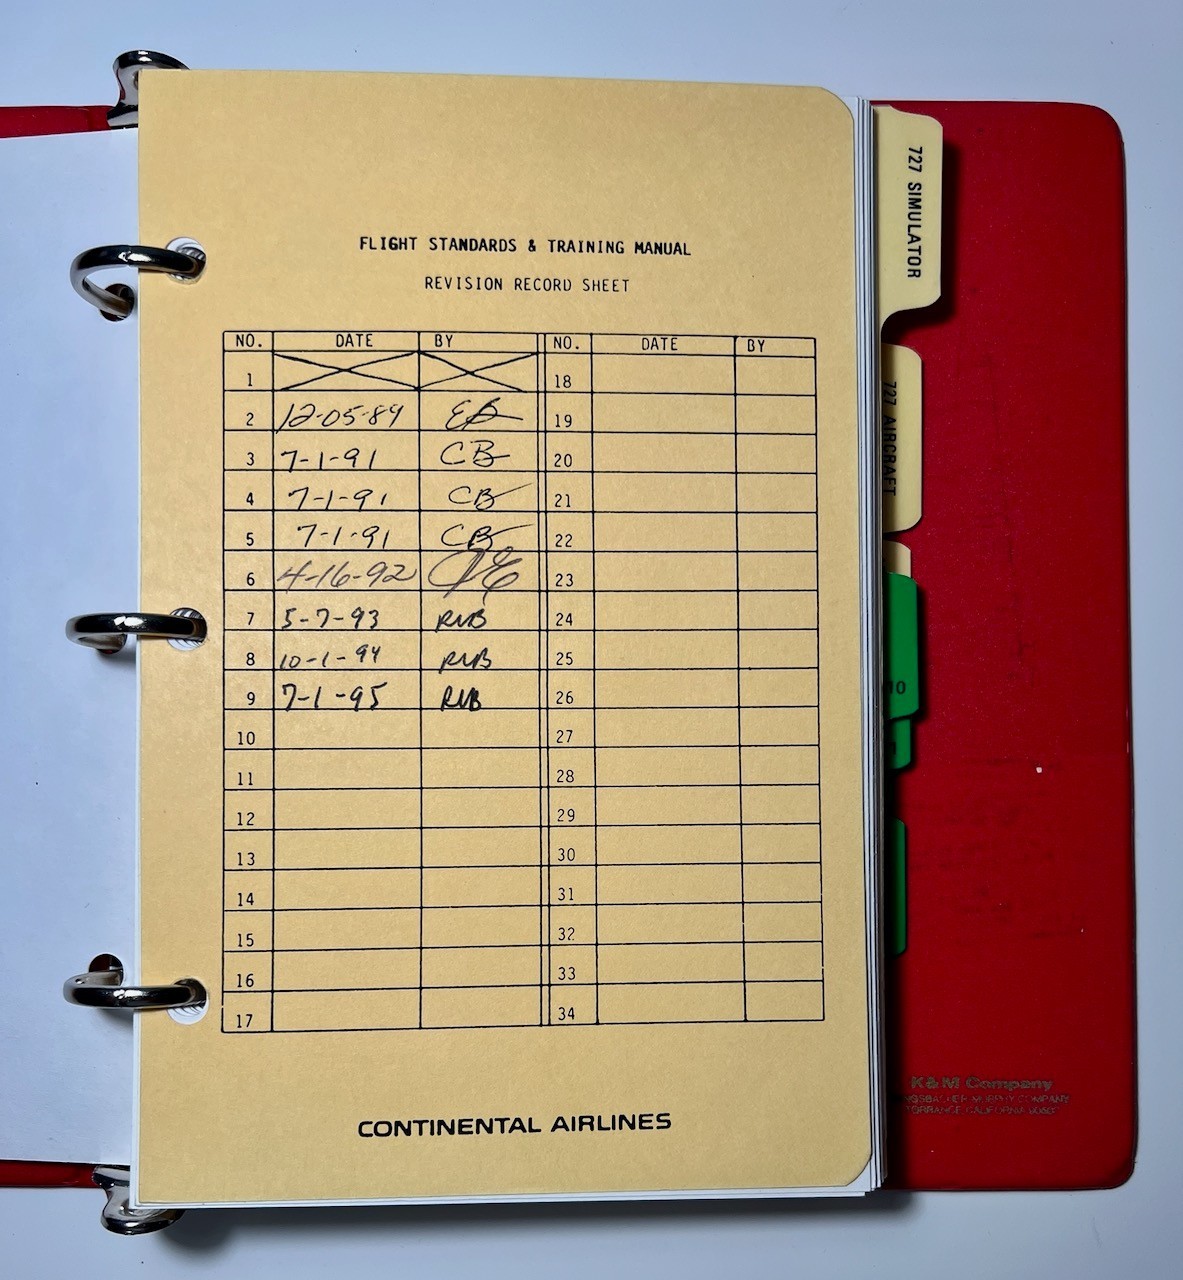 FLIGHT STANDARDS & TRAINING MANUAL
REVISION RECORD SHEET
NO. DATE BY NO. DATE BY
1 18
2 12-05-89 EB 19
3 7-1-91 CB 20
4 7-1-91 CB 21
5 7-1-91 CB 22
6 4-16-92 23
7 5-7-93 RVB 24
8 10-1-94 RVB 25
9 7-1-95 RVB 26
10 27
11 28
12 29
13 30
14 31
15 32
16 33
17 34
CONTINENTAL AIRLINES
727 SIMULATOR
727 AIRCRAFT
10
K&M Company
MURPHY COMPANY
TORRANCE CALIFORNIA